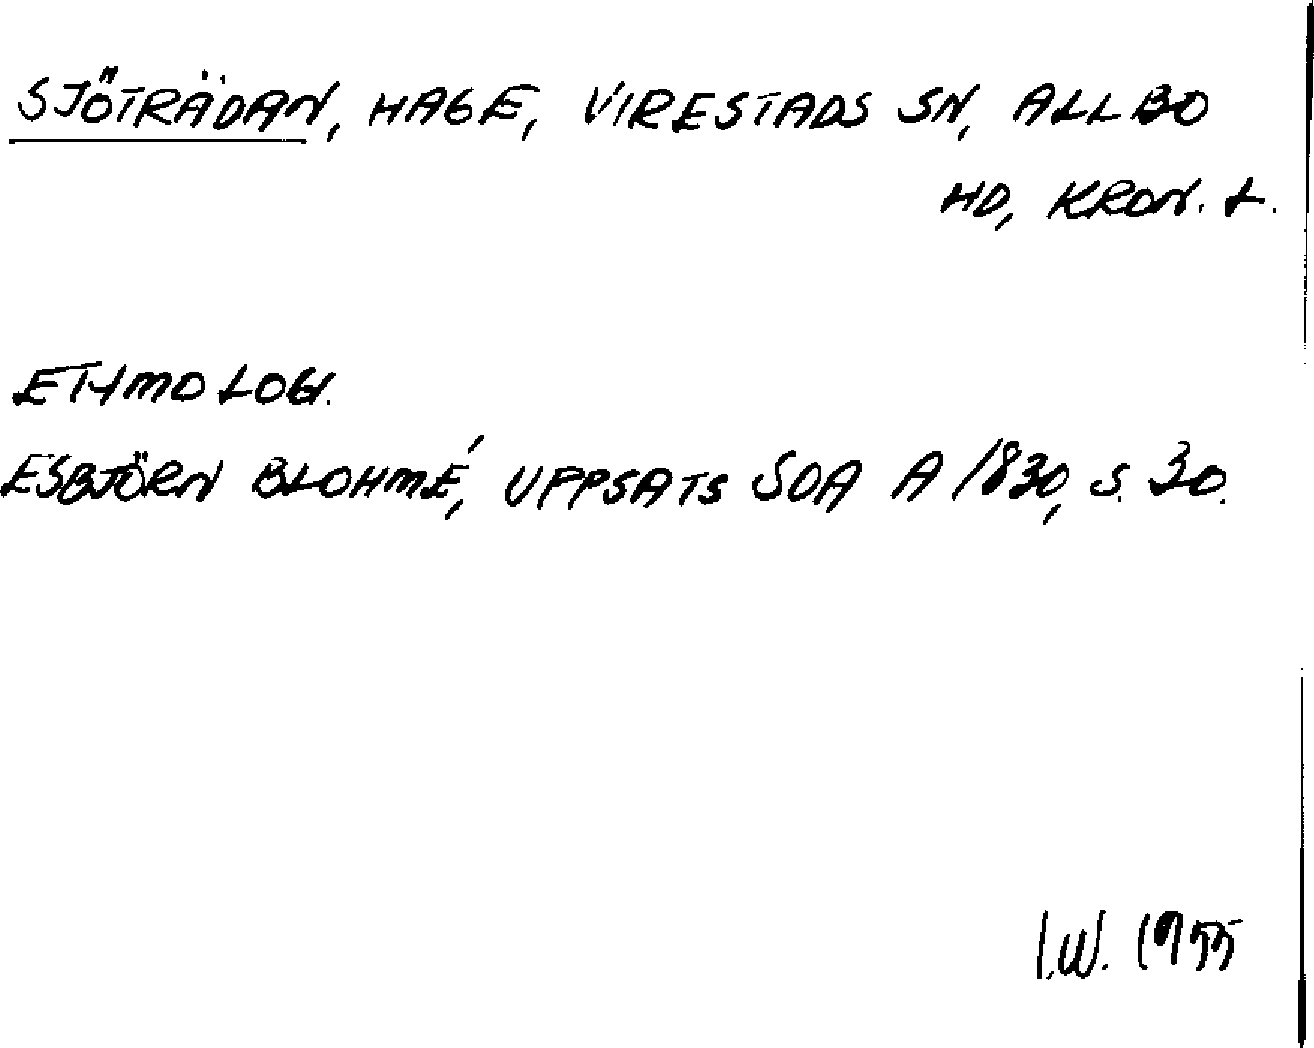 SJÖTRÄDAN, HAGE, VIRESTADS SN, ALLBO
HD, KRON. L.
ETYMOLOGI.
ESBJÖRN BLOHMÉ, UPPSATS SOA A 1830, S. 30.
I.W. 1955